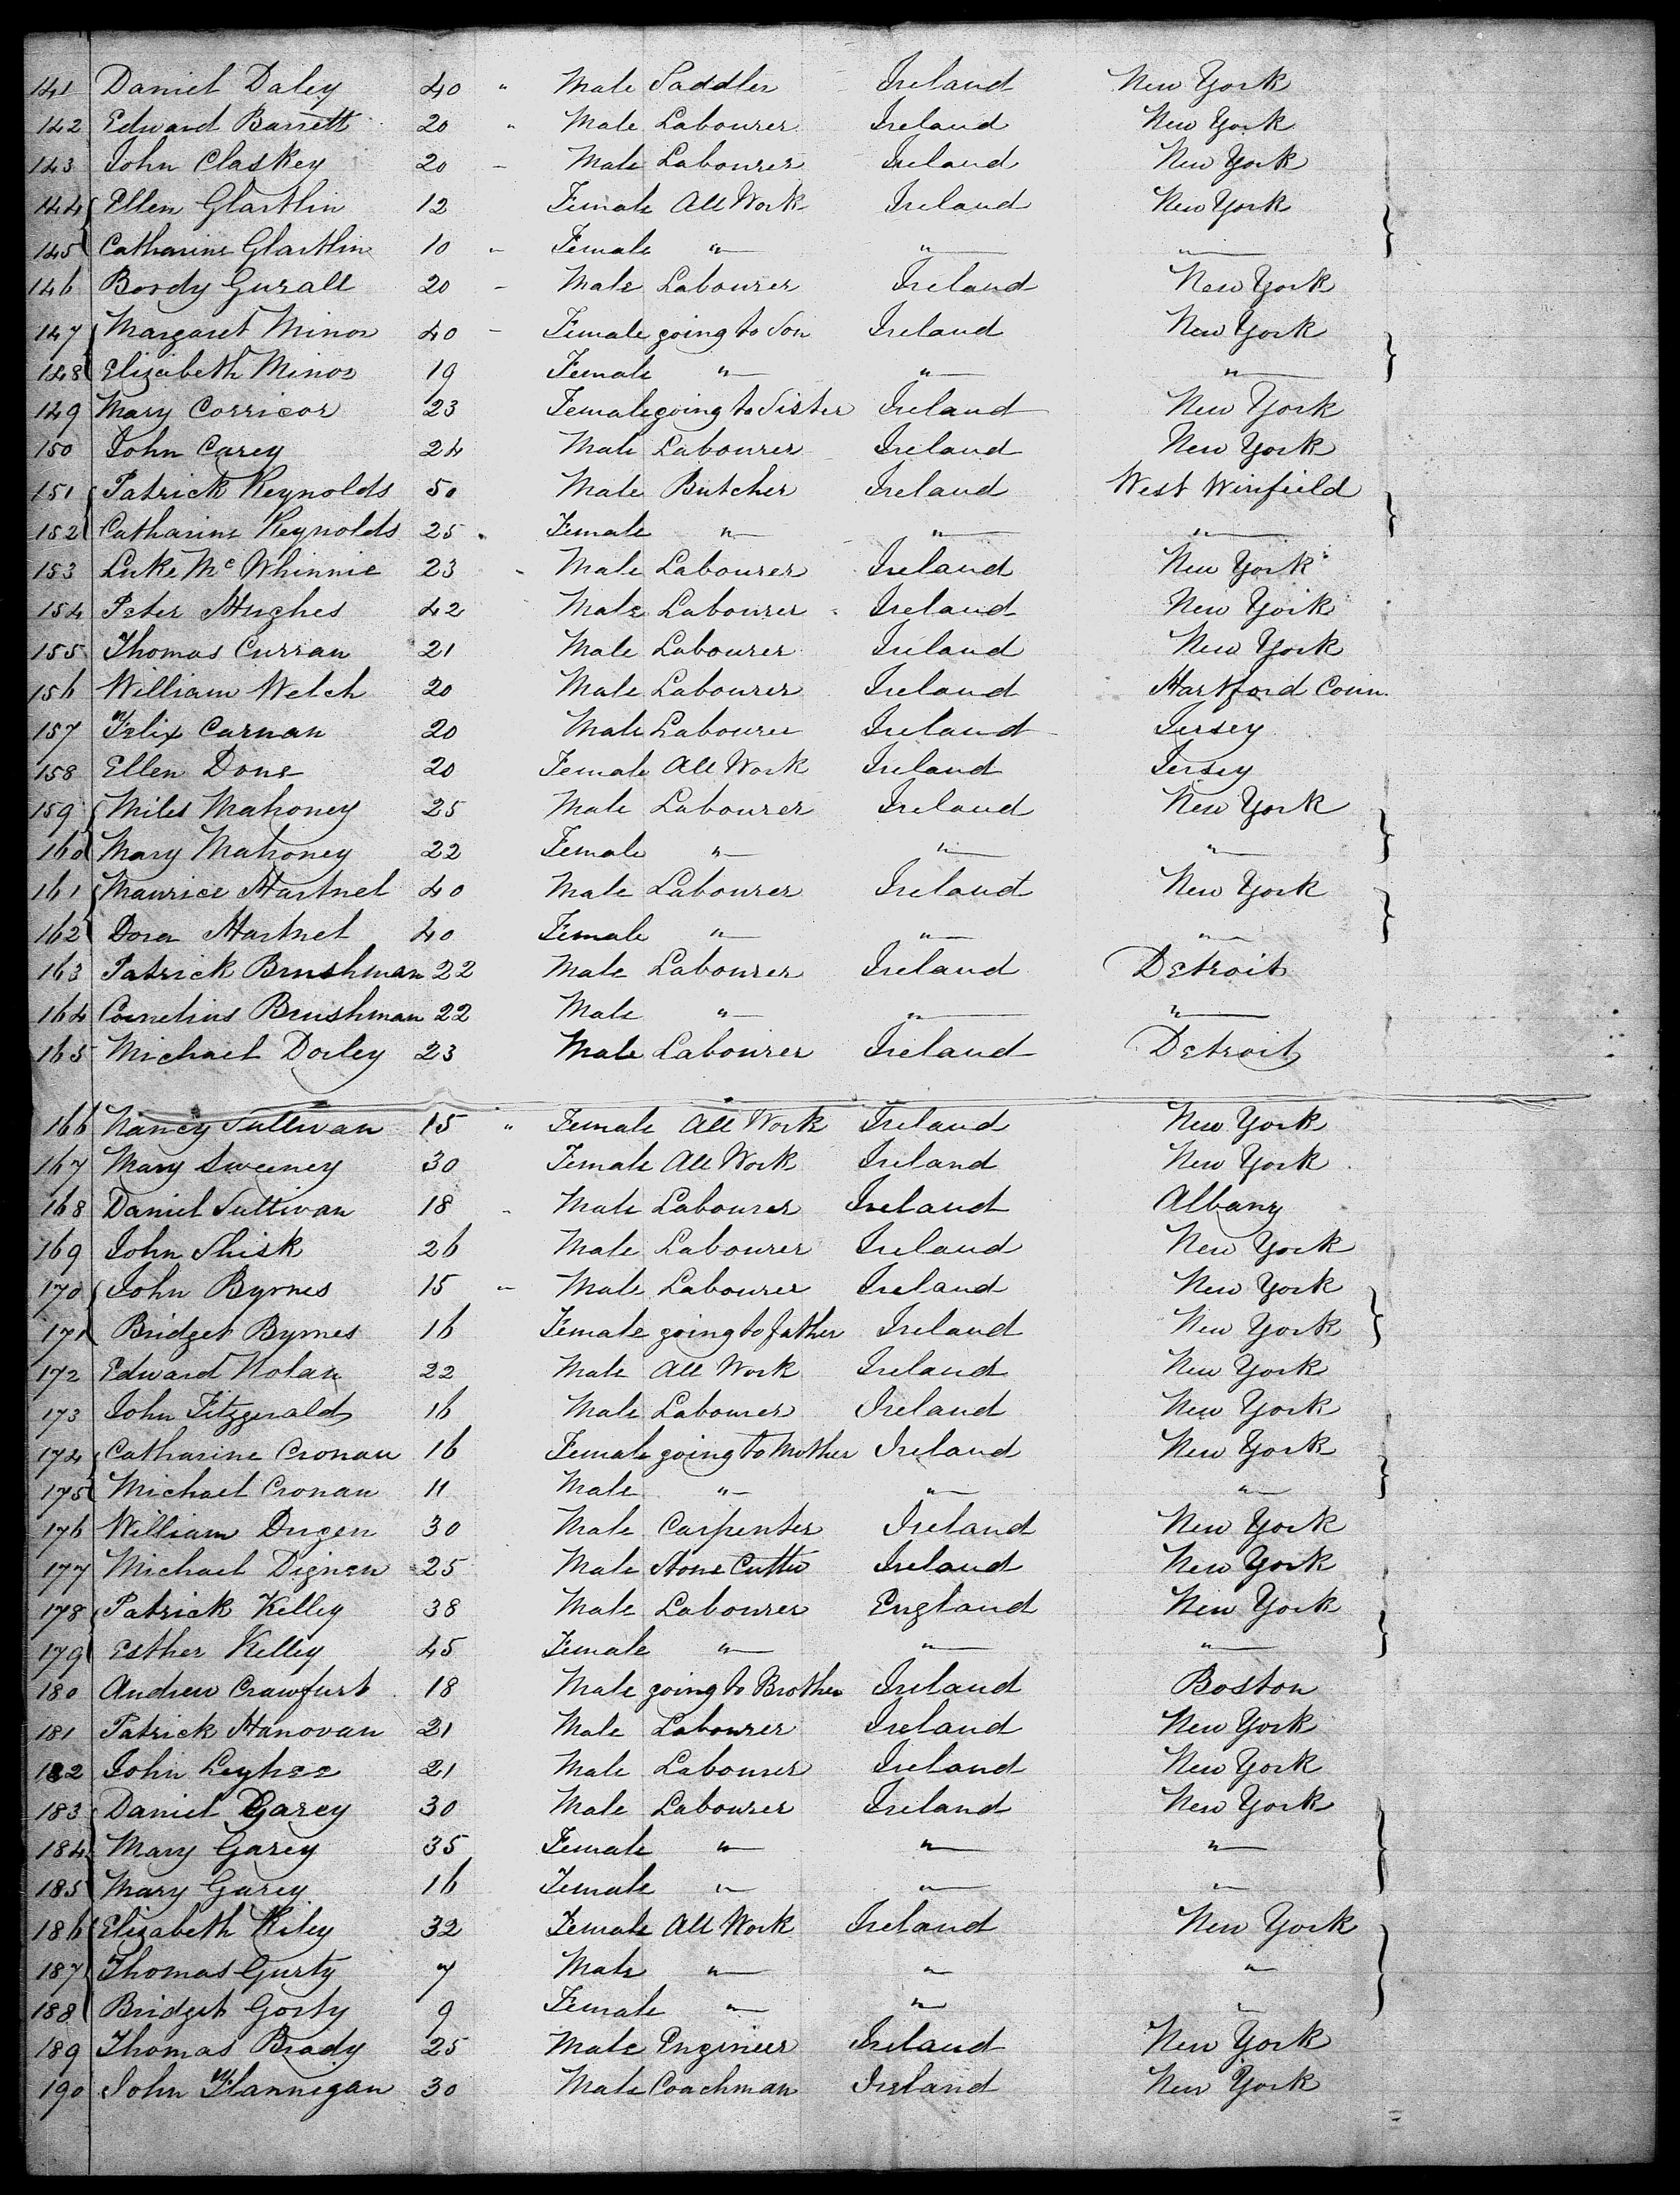 141 Daniel Daley 40 " Male Saddler Ireland New York
142 Edward Barrett 20 " Male Labourer Ireland New York
143 John Claskey 20 - Male Labourer Ireland New York
144 Ellen Glartlin 12 Female All Work Ireland New York
145 Catharine Glartlin 10 - Female " " "
146 Bordy Gurall 20 - Male Labourer Ireland New York
147 Margaret Minor 40 - Female going to Son Ireland New York
148 Elizabeth Minor 19 Female " " "
149 Mary Corricor 23 Female going to Sister Ireland New York
150 John Carey 24 Male Labourer Ireland New York
151 Patrick Reynolds 50 Male Butcher Ireland West Winfield
152 Catharine Reynolds 25 Female " " "
153 Luke McWhinnie 23 - Male Labourer Ireland New York
154 Peter Hughes 42 Male Labourer Ireland New York
155 Thomas Curran 21 Male Labourer Ireland New York
156 William Welch 20 Male Labourer Ireland Hartford Conn.
157 Felix Carnan 20 Male Labourer Ireland Jersey
158 Ellen Done 20 Female All Work Ireland Jersey
159 Miles Mahoney 25 Male Labourer Ireland New York
160 Mary Mahoney 22 Female " " "
161 Maurice Hartnet 40 Male Labourer Ireland New York
162 Dora Hartnet 40 Female " " "
163 Patrick Brushman 22 Male Labourer Ireland Detroit
164 Cornelius Brushman 22 Male " " "
165 Michael Dorley 23 Male Labourer Ireland Detroit
166 Nancy Sullivan 15 " Female All Work Ireland New York
167 Mary Sweeney 30 Female All Work Ireland New York
168 Daniel Sullivan 18 - Male Labourer Ireland Albany
169 John Shisk 26 Male Labourer Ireland New York
170 John Byrnes 15 - Male Labourer Ireland New York
171 Bridget Byrnes 16 Female going to father Ireland New York
172 Edward Nolan 22 Male All Work Ireland New York
173 John Fitzgerald 16 Male Labourer Ireland New York
174 Catharine Cronan 16 Female going to Mother Ireland New York
175 Michael Cronan 11 Male " " "
176 William Dugen 30 Male Carpenter Ireland New York
177 Michael Dignen 25 Male Stone Cutter Ireland New York
178 Patrick Kelley 38 Male Labourer England New York
179 Esther Kelley 45 Female " " "
180 Andrew Crawfurt 18 Male going to Brother Ireland Boston
181 Patrick Hanovan 21 Male Labourer Ireland New York
182 John Leyhee 21 Male Labourer Ireland New York
183 Daniel Garey 30 Male Labourer Ireland New York
184 Mary Garey 35 Female " " "
185 Mary Garey 16 Female " " "
186 Elizabeth Riley 32 Female All Work Ireland New York
187 Thomas Gurty 7 Male " " "
188 Bridget Gorty 9 Female " " "
189 Thomas Brady 25 Male Engineer Ireland New York
190 John Flannegan 30 Male Coachman Ireland New York